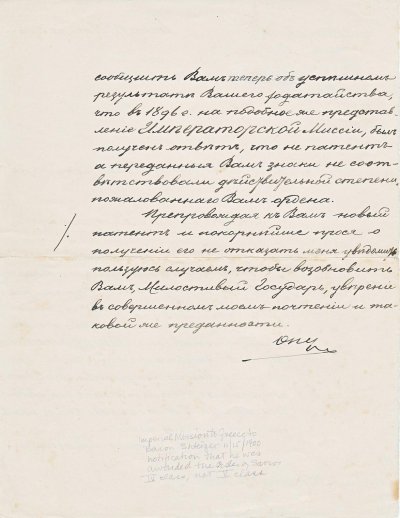 сообщить Вамъ теперь объ успѣшномъ
результатѣ Вашего ходатайства,
что въ 1896 г. на подобное же представ-
леніе Императорской Миссіи, былъ
полученъ отвѣтъ, что не патентъ
а переданныя Вамъ знаки не соот-
вѣтствовали дѣйствительной степени
пожалованнаго Вамъ ордена.
Препровождая къ Вамъ новый
патентъ и покорнѣйше прося о
полученіи его не отказать меня увѣдомить
пользуюсь случаемъ, чтобы возобновить
Вамъ, Милостивый Государь, увѣреніе
въ совершенномъ моемъ почтеніи и та-
ковой же преданности.
Ону
Imperial Mission to Greece to
Baron Steiger 1900
notification that he was
awarded the order
IV class, not V class